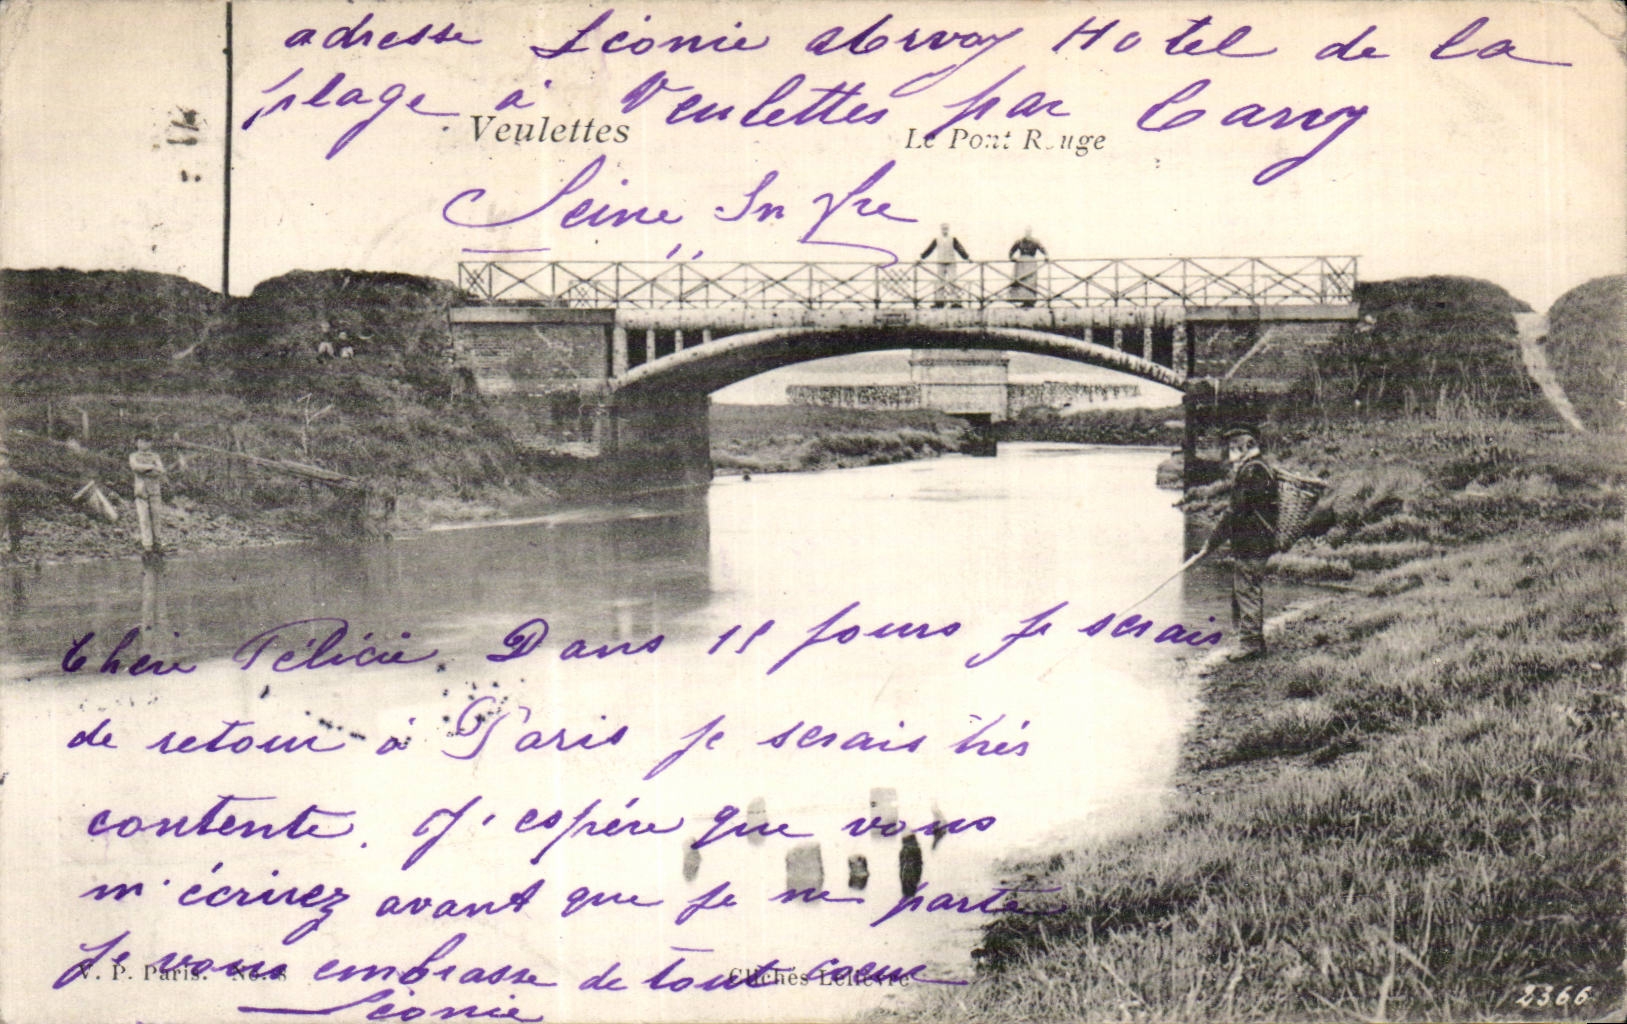 adresse Léonie Abrvay Hotel de la
plage à Veulettes par Cany
Veulettes
Le Pont Rouge
Seine Infre
Chère Félicie Dans 15 jours je serais
de retour à Paris je serais très
contente. J'espère que vous
m'écrirez avant que je ne parte
Je vous embrasse de tout coeur
V. P. Paris.
Clichés Lelièvre
Léonie
2366